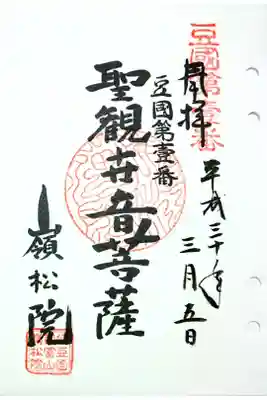 豆國第壹番
奉拝
平成三十年
三月五日
豆國第壹番
聖観世音菩薩
嶺松院